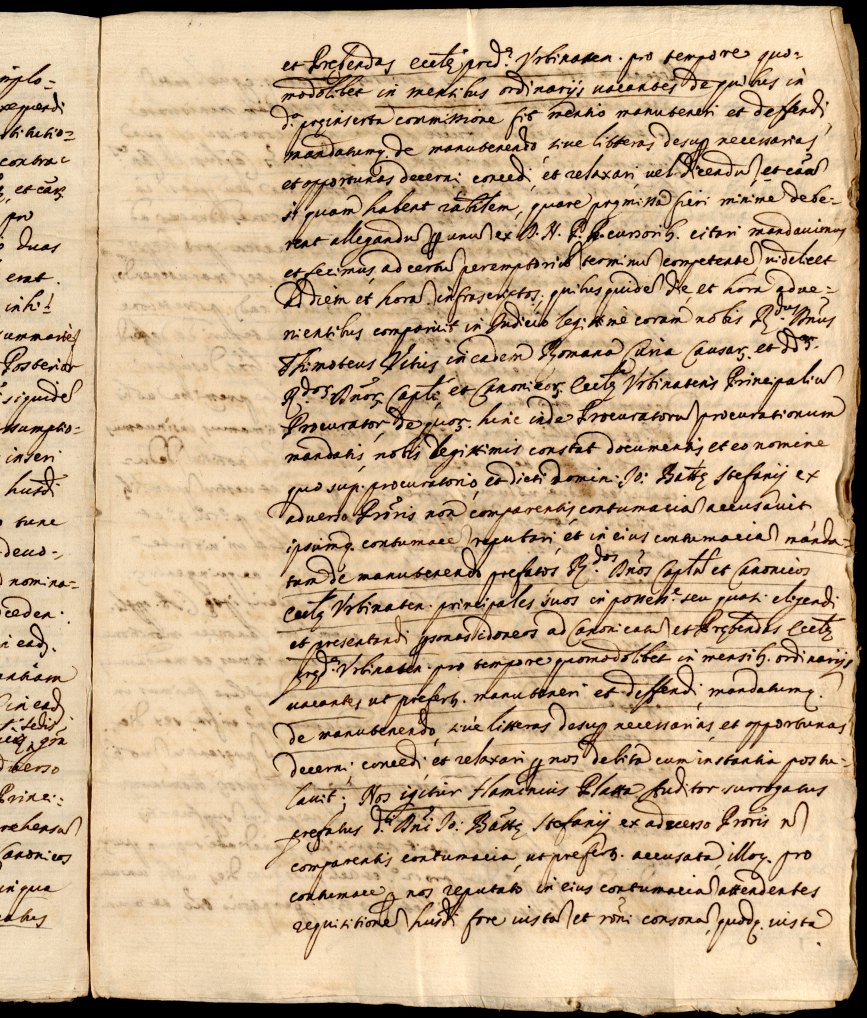 implo=
requendi
stitutio=
contrac
et cãs
pro
duas
erat.
inhi=
summarie
Posterior
siquidē
ssumptio=
inseri
husdi
tunc
deuo=
nomina=
ceden.
ead.
in ead
diuerso
Princi=
rehensa
Canonicos
in qua
et Prebendas Eccłę pred.ᵉ Vrbinaten. pro tempore quo=
modolibet in mensibus ordinarijs uacantes de quibus in
d.ᵃ preinserta commissione fit mentio manuteneri et deffendi
mandatumq. de manutenendo siue litteras desup necessarias
et opportunas decerni concedi, et relaxari, uel dicendū et cām̄
si quam habent rãbilem, quare premissa fieri minime debe=
rent allegandū p unū ex D. N. P. P. cursorib. citari mandauimus
et fecimus ad certū peremptoriū terminū competentē uidelicet
Ad diem et horā infrascriptos; quibus quidē die et hora adue=
nientibus comparuit in Judicio legitimè corā nobis R.ᵈᵘˢ Dñus
Thimoteus Vitius in eadem Romana Curia Causar. et dd.
R.ᵈᵒʳ. Dñor. Capłi et Canonicor. Eccłę Vrbinatensis Principaliū
Procurator, de quor. hinc inde Procuratorū procurationum
mandatis nobis legitimis constat documentis et eo nomine
quo sup. procuratorio, et dicti domini Jo: Battę Stefanij ex
aduerso Prõris non comparentis contumaciā accusauit
ipsumq. contumacē reputari et in eius contumaciā manda=
tum de manutenendo prefatos R.ᵈᵒˢ Dños Capłm et Canonicos
Eccłę Vrbinaten. principales suos in possess.ᵉ seu quasi eligendi
et presentandi psonas idoneos ad Canonicatū et Prebendas Eccłę
pred.ᵉ Vrbinaten. pro tempore quomodolibet in mensib. ordinarijs
uacantes ut prefert. manuteneri et deffendi mandatumq.
de manutenendo, siue litteras desup necessarias et opportunas
decerni concedi et relaxari p nos debita cum instantia postu=
lauit; Nos igitur Flaminius Platta Auditor surrogatus
prefatus d.ⁱ Dñi Jo: Battę Stefanij ex aduerso Prõris nō
comparentis contumacia, ut prefert. accusata, illoq. pro
contumace p nos reputato in eius contumaciā attendentes
requisitionē husdi fore iustā et rõni consonā, quodq. iusta